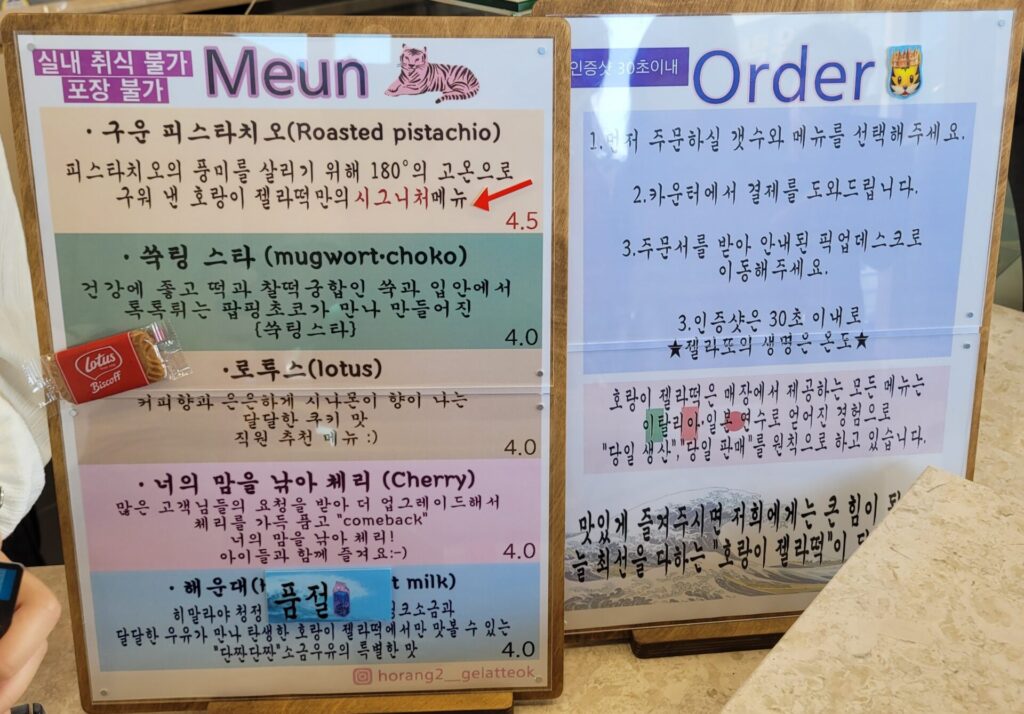 실내 취식 불가
포장 불가
Meun
· 구운 피스타치오(Roasted pistachio)
피스타치오의 풍미를 살리기 위해 180°의 고온으로
구워 낸 호랑이 젤라떡만의 시그니처메뉴
4.5
· 쑥팅 스타 (mugwort·choko)
건강에 좋고 떡과 찰떡궁합인 쑥과 입안에서
톡톡튀는 팝핑초코가 만나 만들어진
{쑥팅스타}
4.0
lotus
Biscoff
·로투스(lotus)
커피향과 은은하게 시나몬이 향이 나는
달달한 쿠키 맛
직원 추천 메뉴 :)
4.0
· 너의 맘을 낚아 체리 (Cherry)
많은 고객님들의 요청을 받아 더 업그레이드해서
체리를 가득 품고 "comeback"
너의 맘을 낚아 체리!
아이들과 함께 즐겨요:-)
4.0
· 해운대( milk)
품절
히말라야 청정 크소금과
달달한 우유가 만나 탄생한 호랑이 젤라떡에서만 맛볼 수 있는
"단짠단짠"소금우유의 특별한 맛
4.0
horang2__gelatteok
인증샷 30초이내
Order
1.먼저 주문하실 갯수와 메뉴를 선택해주세요.
2.카운터에서 결제를 도와드립니다.
3.주문서를 받아 안내된 픽업데스크로
이동해주세요.
3.인증샷은 30초 이내로
★젤라또의 생명은 온도★
호랑이 젤라떡은 매장에서 제공하는 모든 메뉴는
이탈리아·일본 연수로 얻어진 경험으로
"당일 생산","당일 판매"를 원칙으로 하고 있습니다.
맛있게 즐겨주시면 저희에게는 큰 힘이
늘 최선을 다하는 "호랑이 젤라떡"이